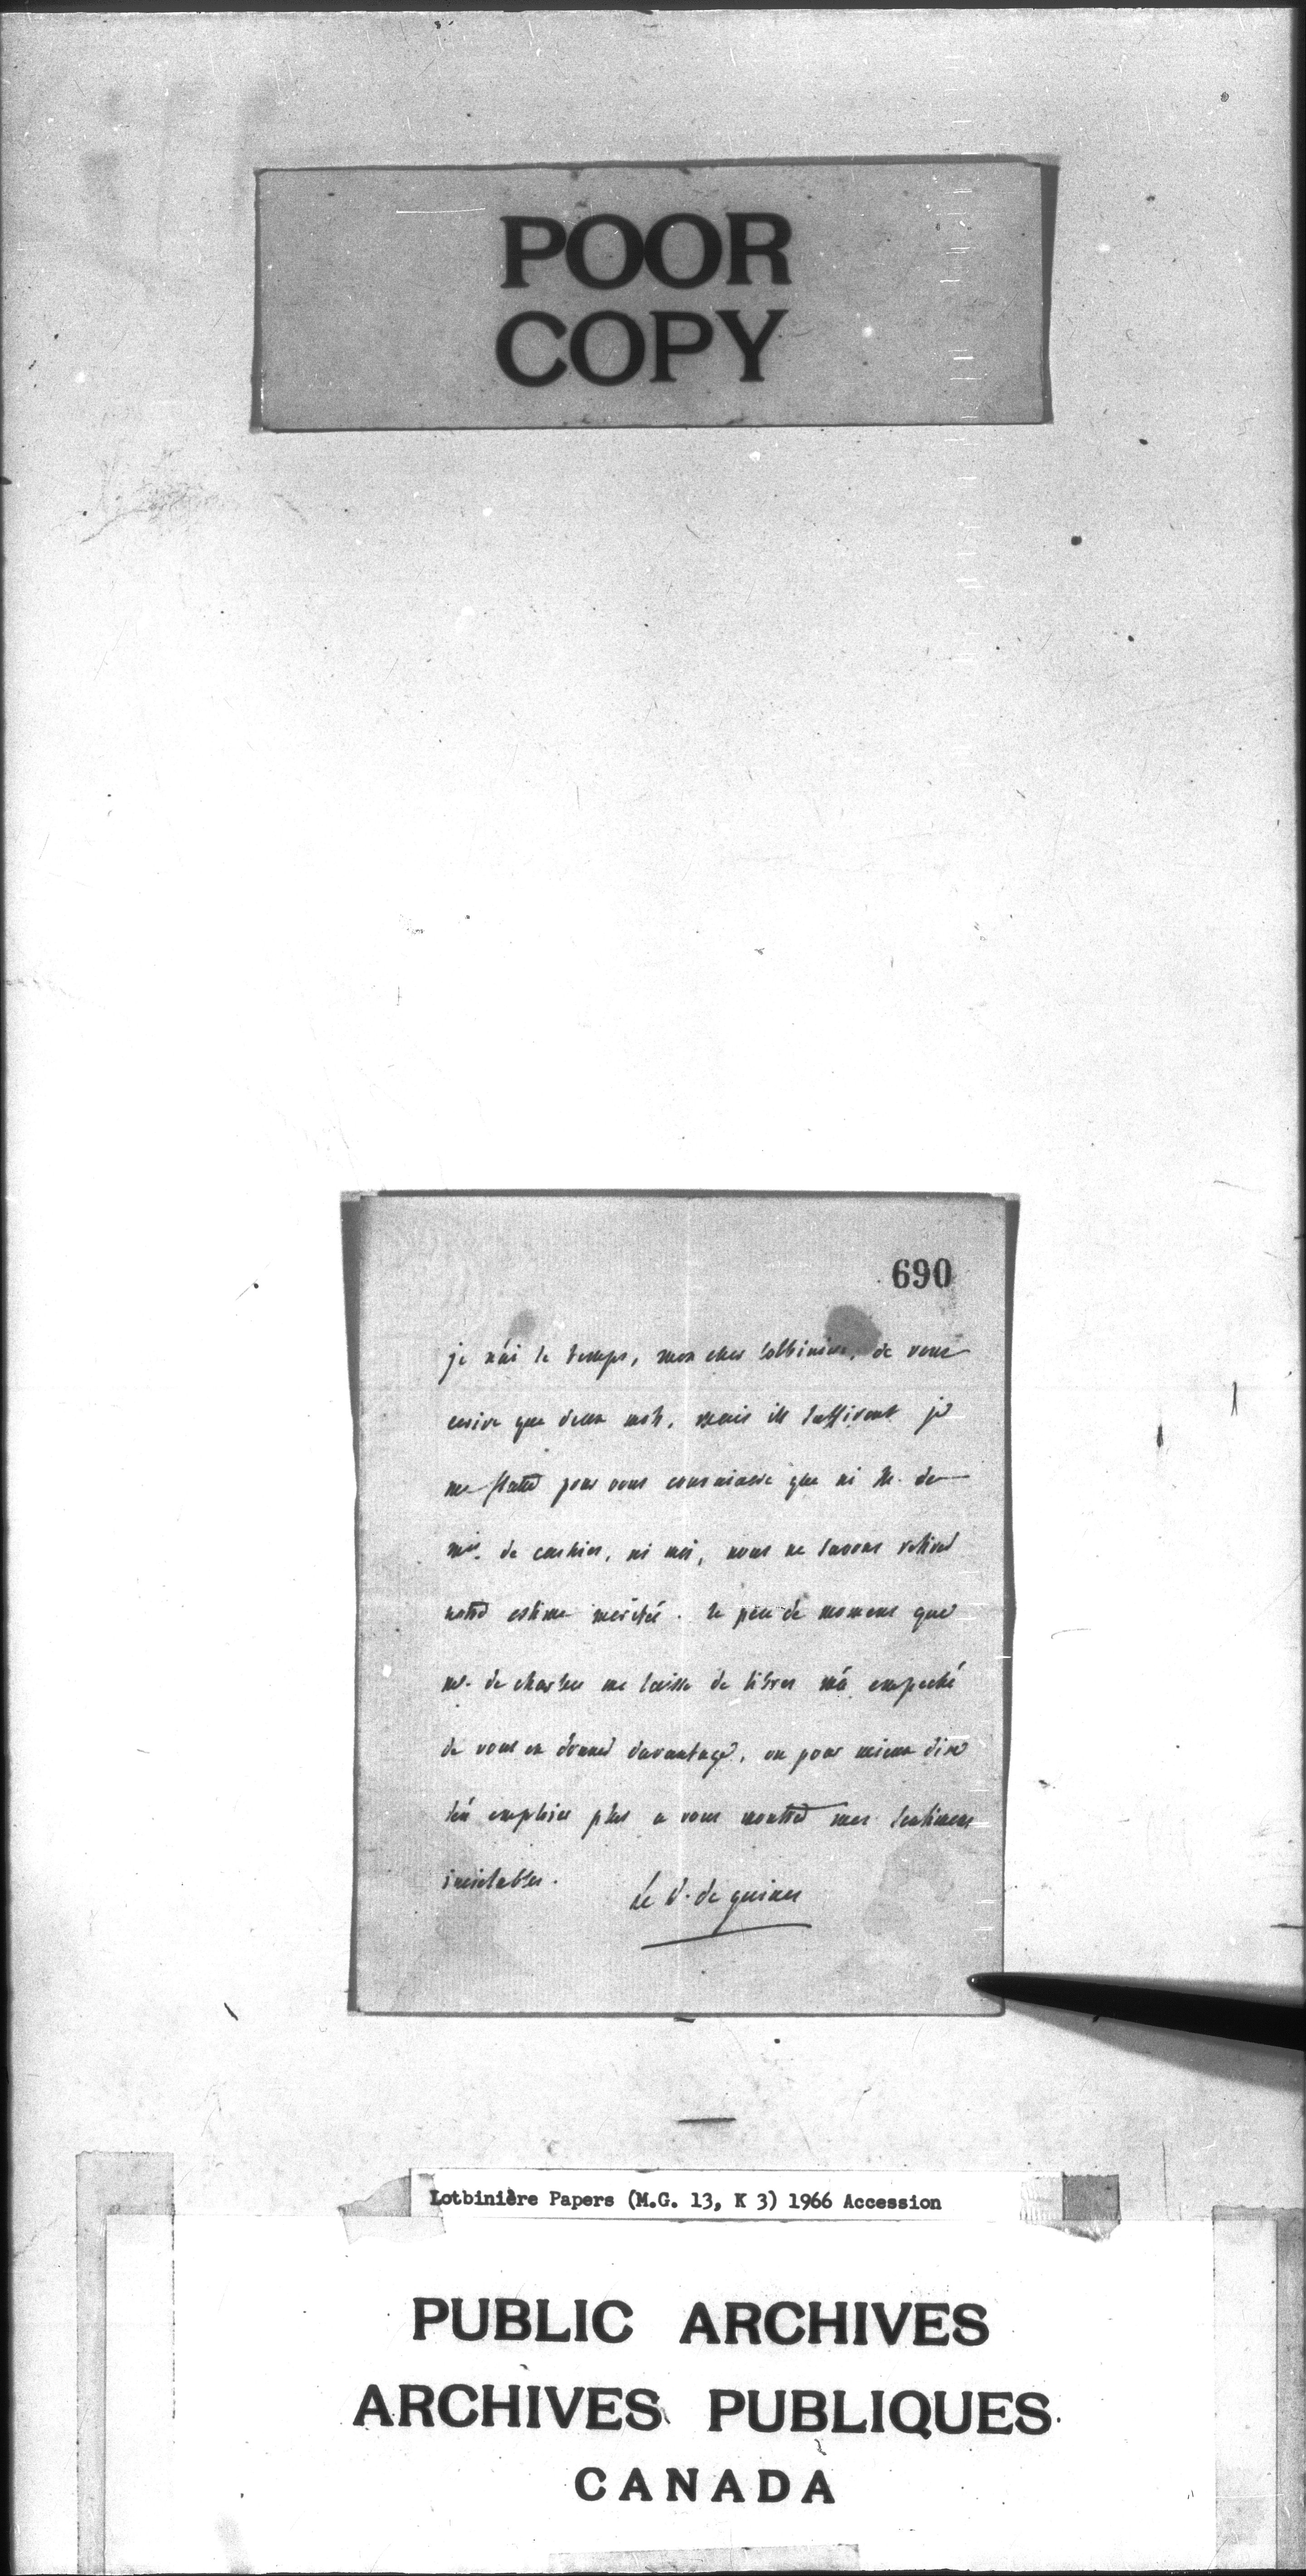 POOR
COPY
690
je n'ai le temps, mon cher lotbiniere, de vous
ecrire que deux mots, mais ils suffiront je
me flatte pour vous convaincre que ni M. de
ni moi, nous ne
notre estime meritée. le peu de momens que
mr. de me laisse de libres m'a empeché
de vous en donner davantage, ou pour mieux dire
plus a vous montrer mes sentimens
inviolables.
Le D. de guines
Lotbinière Papers (M.G. 13, K 3) 1966 Accession
PUBLIC ARCHIVES
ARCHIVES PUBLIQUES
CANADA